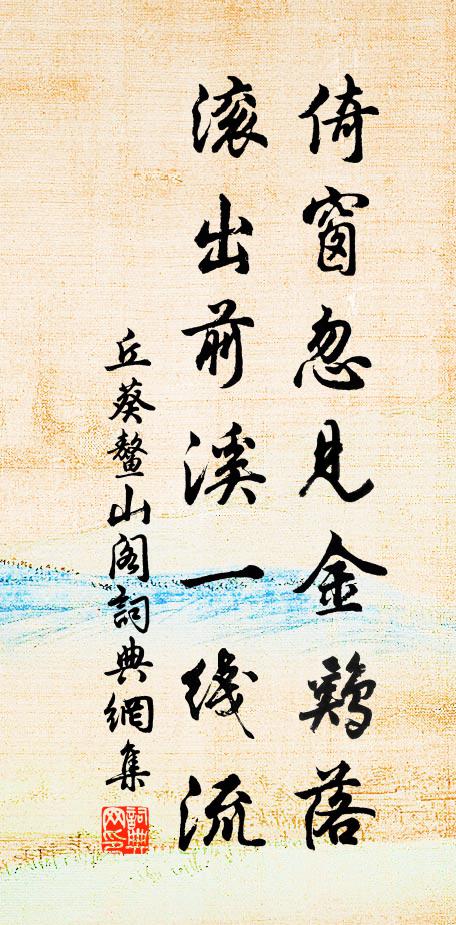 倚窗忽见金鷄落
滚出前溪一线流
丘葵鳌山阁詞典網集
詞典
网印